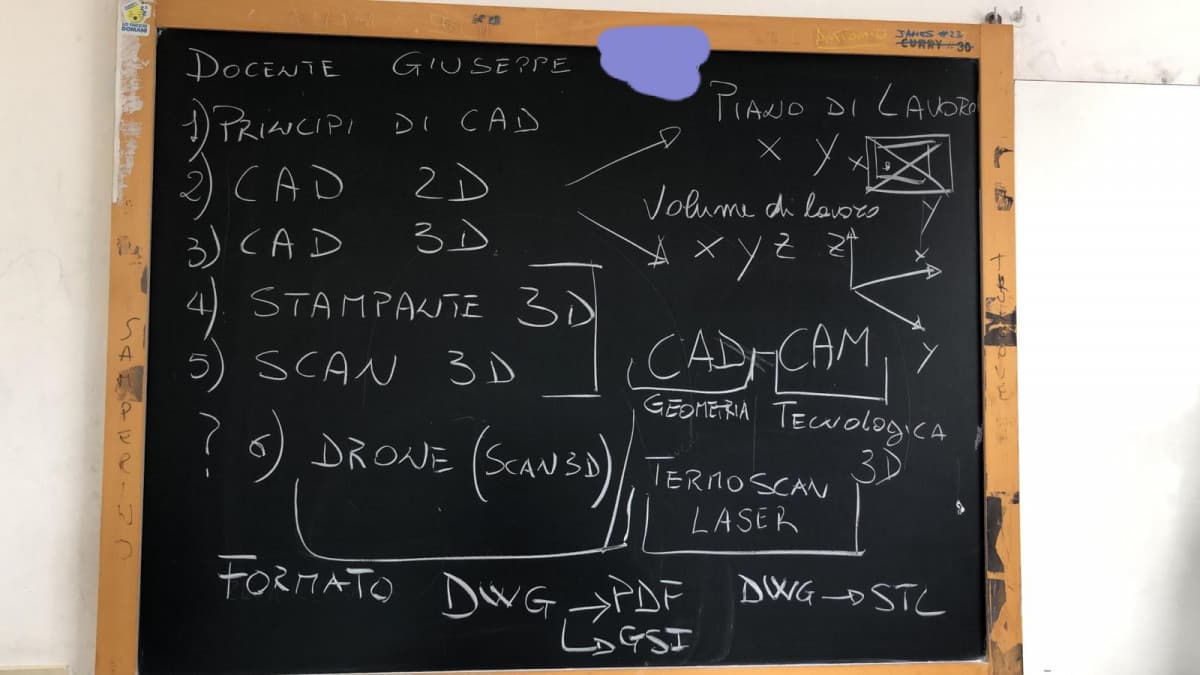 DOCENTE GIUSEPPE
1) PRINCIPI DI CAD
2) CAD 2D
3) CAD 3D
4) STAMPANTE 3D
5) SCAN 3D
? 6) DRONE (SCAN 3D)
PIANO DI LAVORO
X Y X
Y
Volume di lavoro
X Y Z Z
X
Y
CAD-CAM
GEOMETRIA TECNOLOGICA
TERMOSCAN 3D
LASER
FORMATO DWG → PDF DWG → STL
GSI
JAMES #23
CURRY #30
SAMPERINO
DOMANI